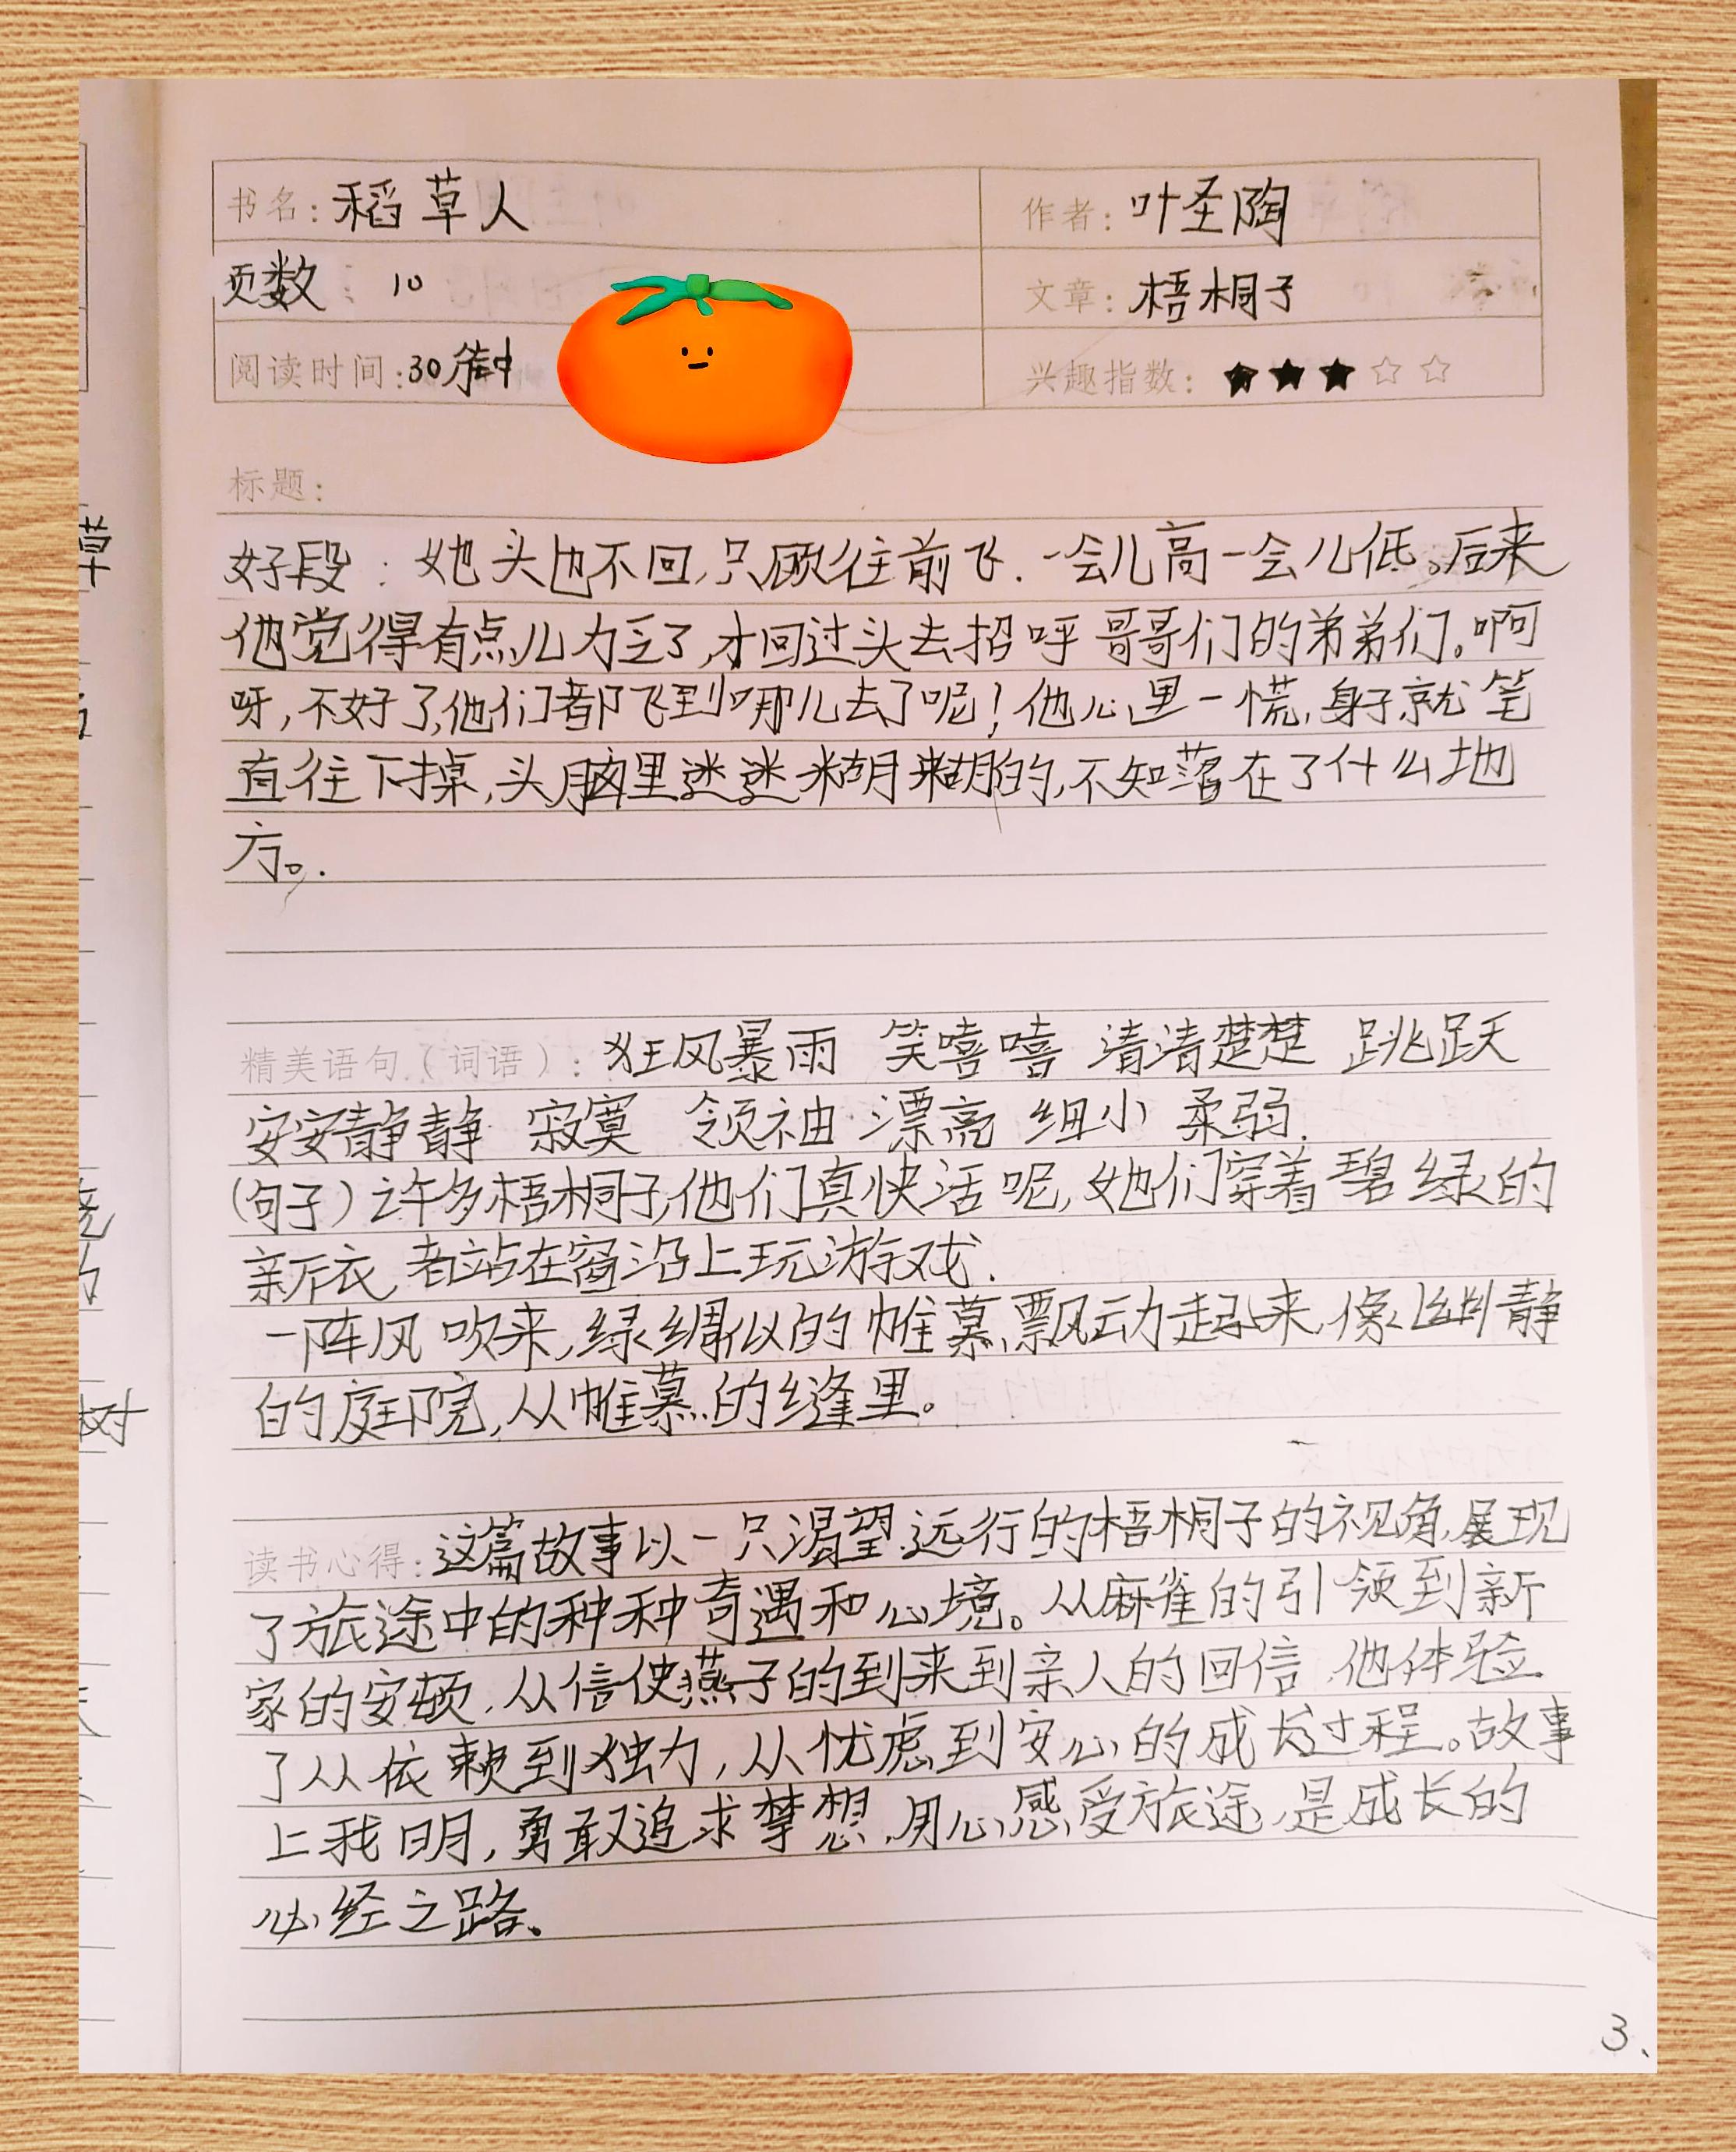 书名：稻草人 作者：叶圣陶
页数： 10 文章：梧桐子
阅读时间：30分钟 兴趣指数：★★★☆☆
标题：
好段：她头也不回，只顾往前飞．一会儿高一会儿低。后来
他觉得有点儿力乏了，才回过头去招呼哥哥们的弟弟们。啊
呀，不好了，他们都飞到哪儿去了呢！他心里一慌，身子就笔
直往下掉，头脑里迷迷糊糊的，不知落在了什么地
方。．
精美语句（词语）：狂风暴雨 笑嘻嘻 清清楚楚 跳跃
安安静静 寂寞 领袖 漂亮 细小 柔弱．
（句子）许多梧桐子，他们真快活呢，她们穿着碧绿的
新衣，都站在窗沿上玩游戏．
一阵风吹来，绿绸似的帷幕飘动起来，像幽静
的庭院，从帷幕的缝里。
读书心得：这篇故事以一只渴望远行的梧桐子的视角，展现
了旅途中的种种奇遇和心境。从麻雀的引领到新
家的安顿，从信使燕子的到来到亲人的回信，他体验
了从依赖到独力，从忧虑到安心的成长过程。故事
上我明，勇敢追求梦想，用心感受旅途，是成长的
必经之路、
3、
草
树